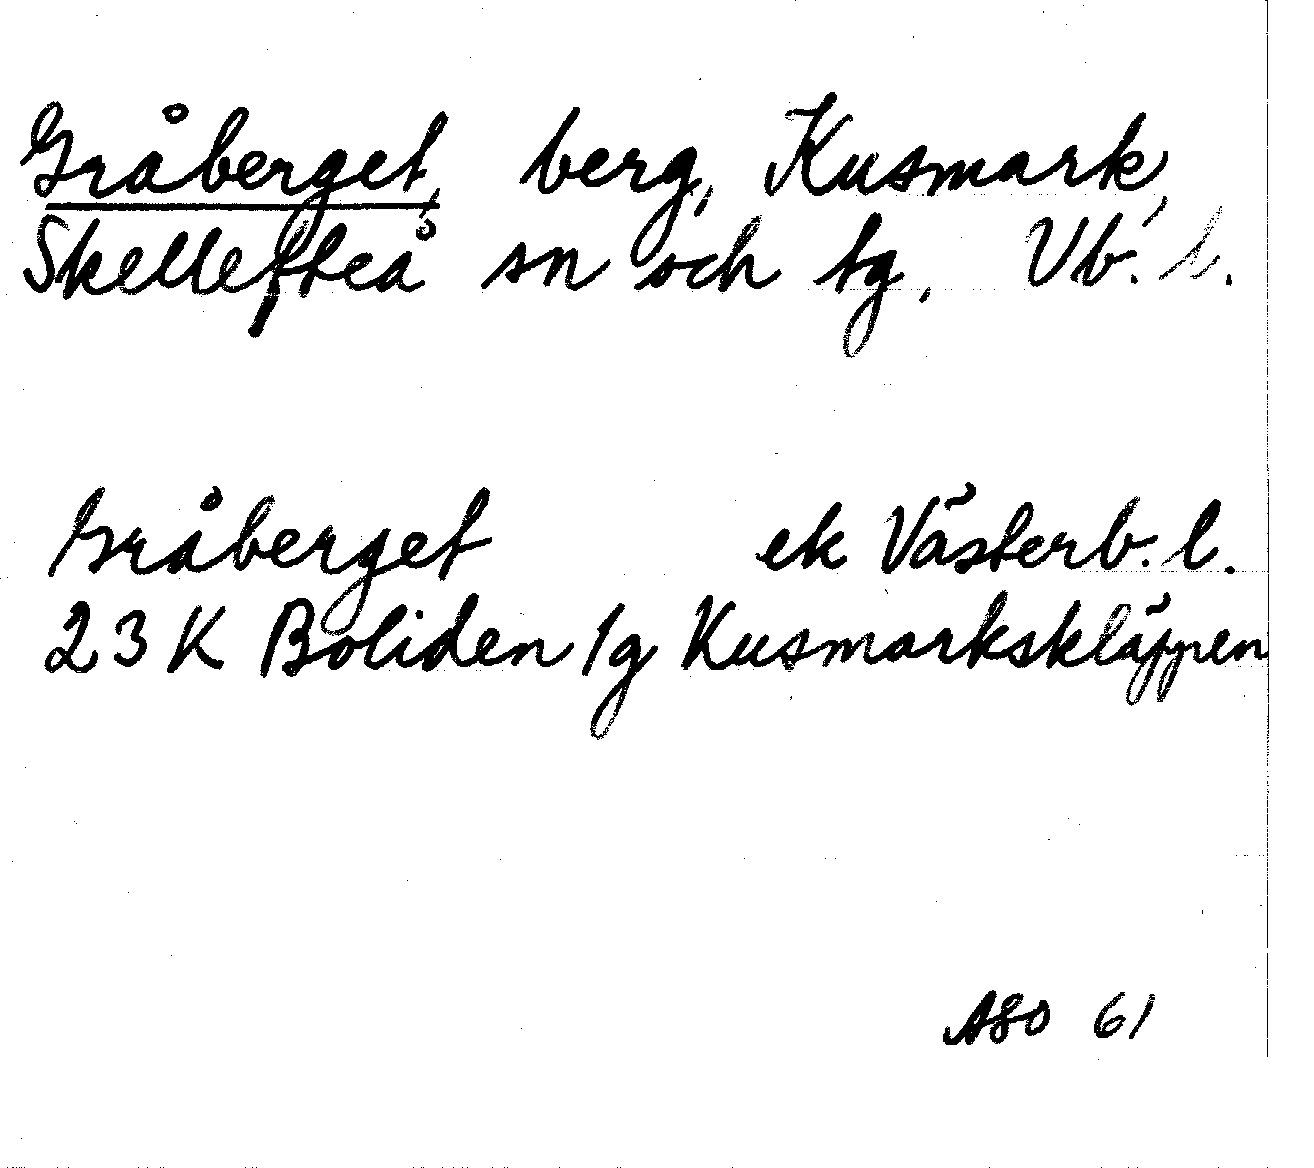 Gråberget, berg, Kusmark,
Skellefteå sn och tg, Vb. l.
Gråberget ek Västerb. l.
23 K Boliden 1g Kusmarkskläppen
ASO 61